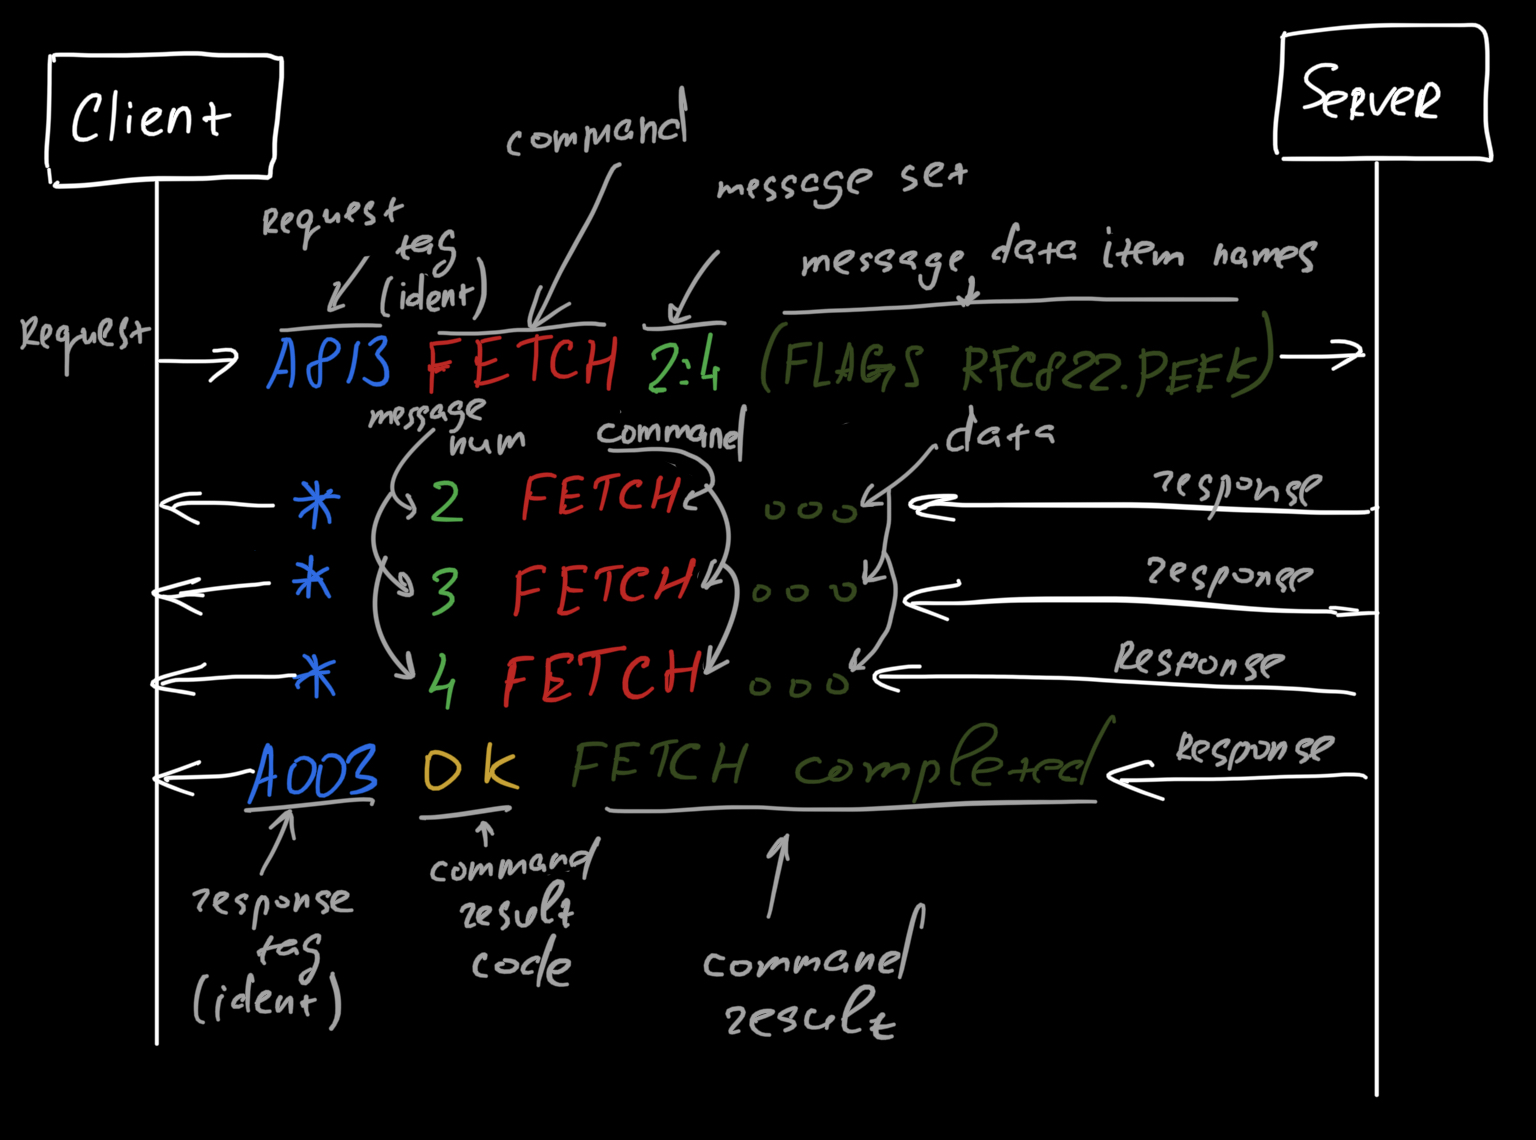 Client
Server
command
message set
Request
tag
(ident)
message data item names
Request
A813 FETCH 2:4 (FLAGS RFC822.PEEK)
message
num
command
data
* 2 FETCH ooo
response
* 3 FETCH ooo
response
* 4 FETCH ooo
Response
A003 OK FETCH completed
Response
response
tag
(ident)
command
result
code
command
result